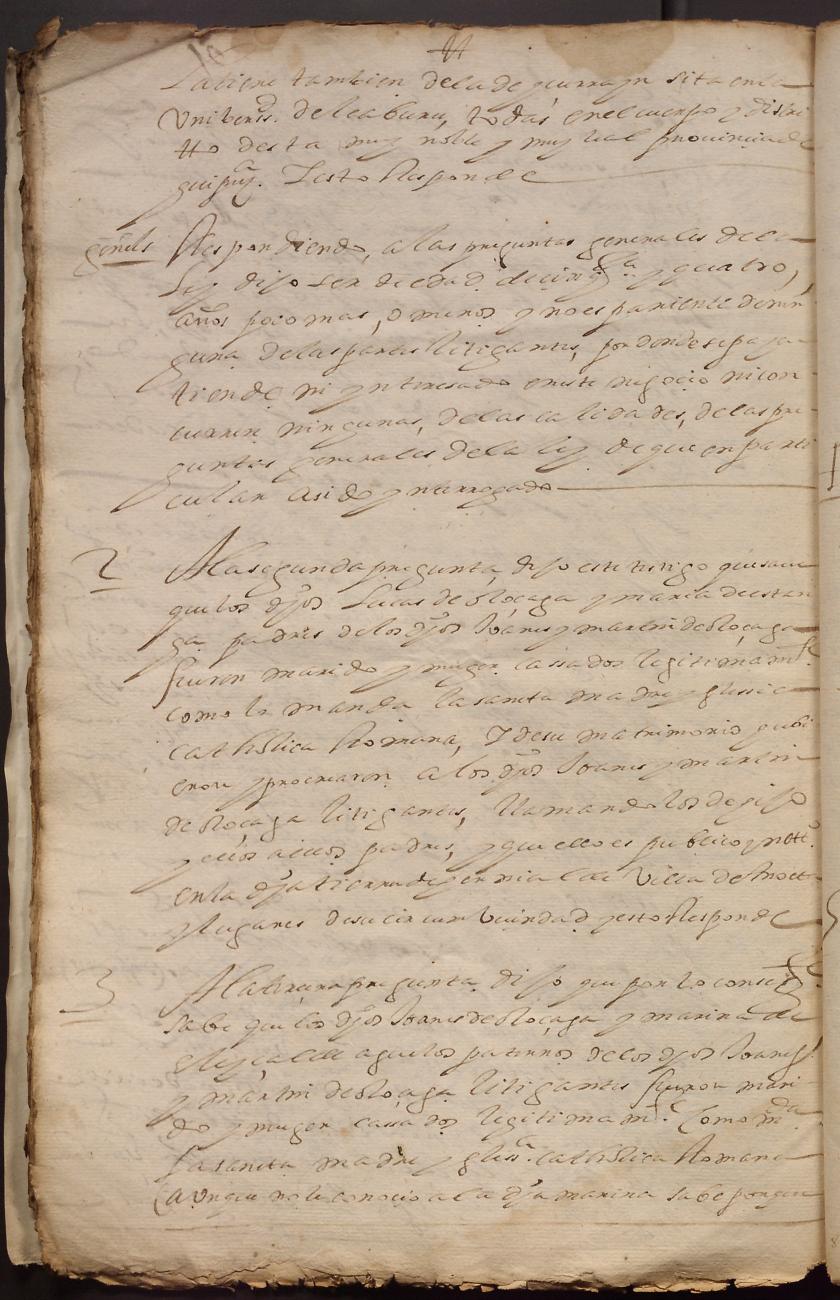 La tiene tambien de la de yurrayn sita en la
Universs.d de leaburu, todas en el cuerpo y distri
tto desta muy noble y muy leal provincia de
guipuz.a Y esto Responde
genels Respondiendo, a las preguntas generales de la
Ley dijo ser de edad de cinq.ta y quatro,
años poco mas, o menos y no es pariente de nin
guna de las partes litigantes, por donde se paja
tiende ni ynteresado en este negocio ni con
curren ningunas, de las calidades, de las pre
guntas generales de la ley de que en parti
cular a sido ynterrogado
2 A la segunda pregunta, dijo este testigo que save
que los dhos Lucas de oloçaga y maria de estan
ga padres de los dhos Joanes y martin de oloçaga
fueron marido y muger cassados legitimam.te
como lo manda la sancta madre yglessia
catholica Romana, Y de su matrimonio hubi
eron y procrearon a los dhos Joanes y martin
de oloçaga litigantes, llamandolos de hijo
y ellos a ellos padres, y que ello es publico y not.o
en la dha tierra de hernialde Villa de
y lugares de su circumvecindad y esto Responde
3 A la tercera pregunta dijo que por lo conse
sabe que los dhos Joanes de oloçaga y marina de
aguelos paternos de los dhos Joanes
y martin de oloçaga litigantes fueron mari
do y muger cassados legitimam.te Como m.da
La sancta madre ygless.a catholica Romana
(aunque no le conocio a la dha marina sabe porque